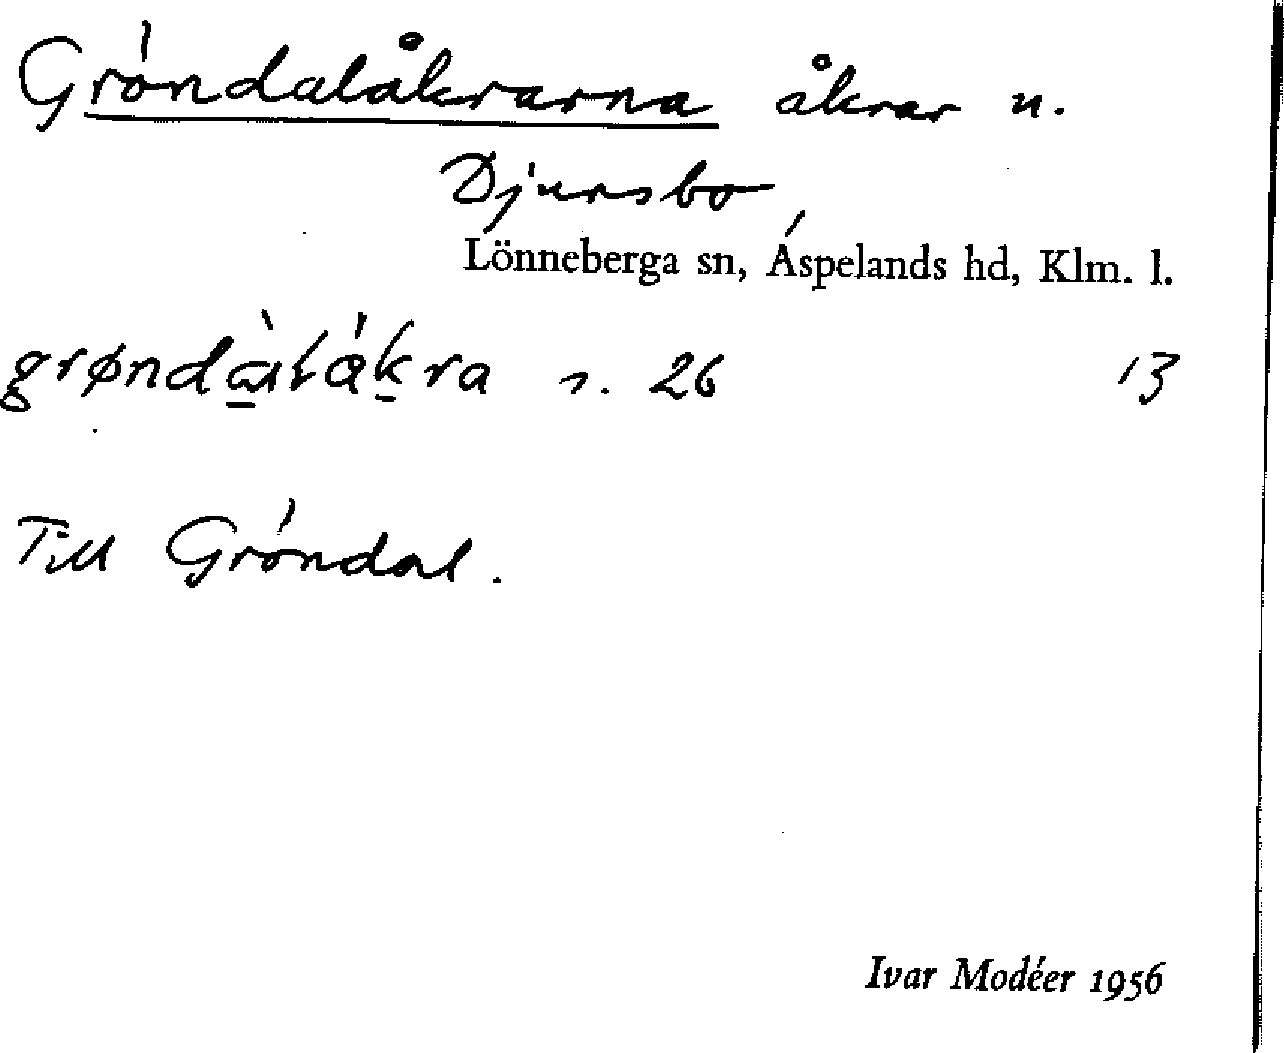 Gröndalåkrarna åkrar n.
Djursbo
Lönneberga sn, Áspelands hd, Klm. l.
s. 26 13
Till Gröndal.
Ivar Modéer 1956